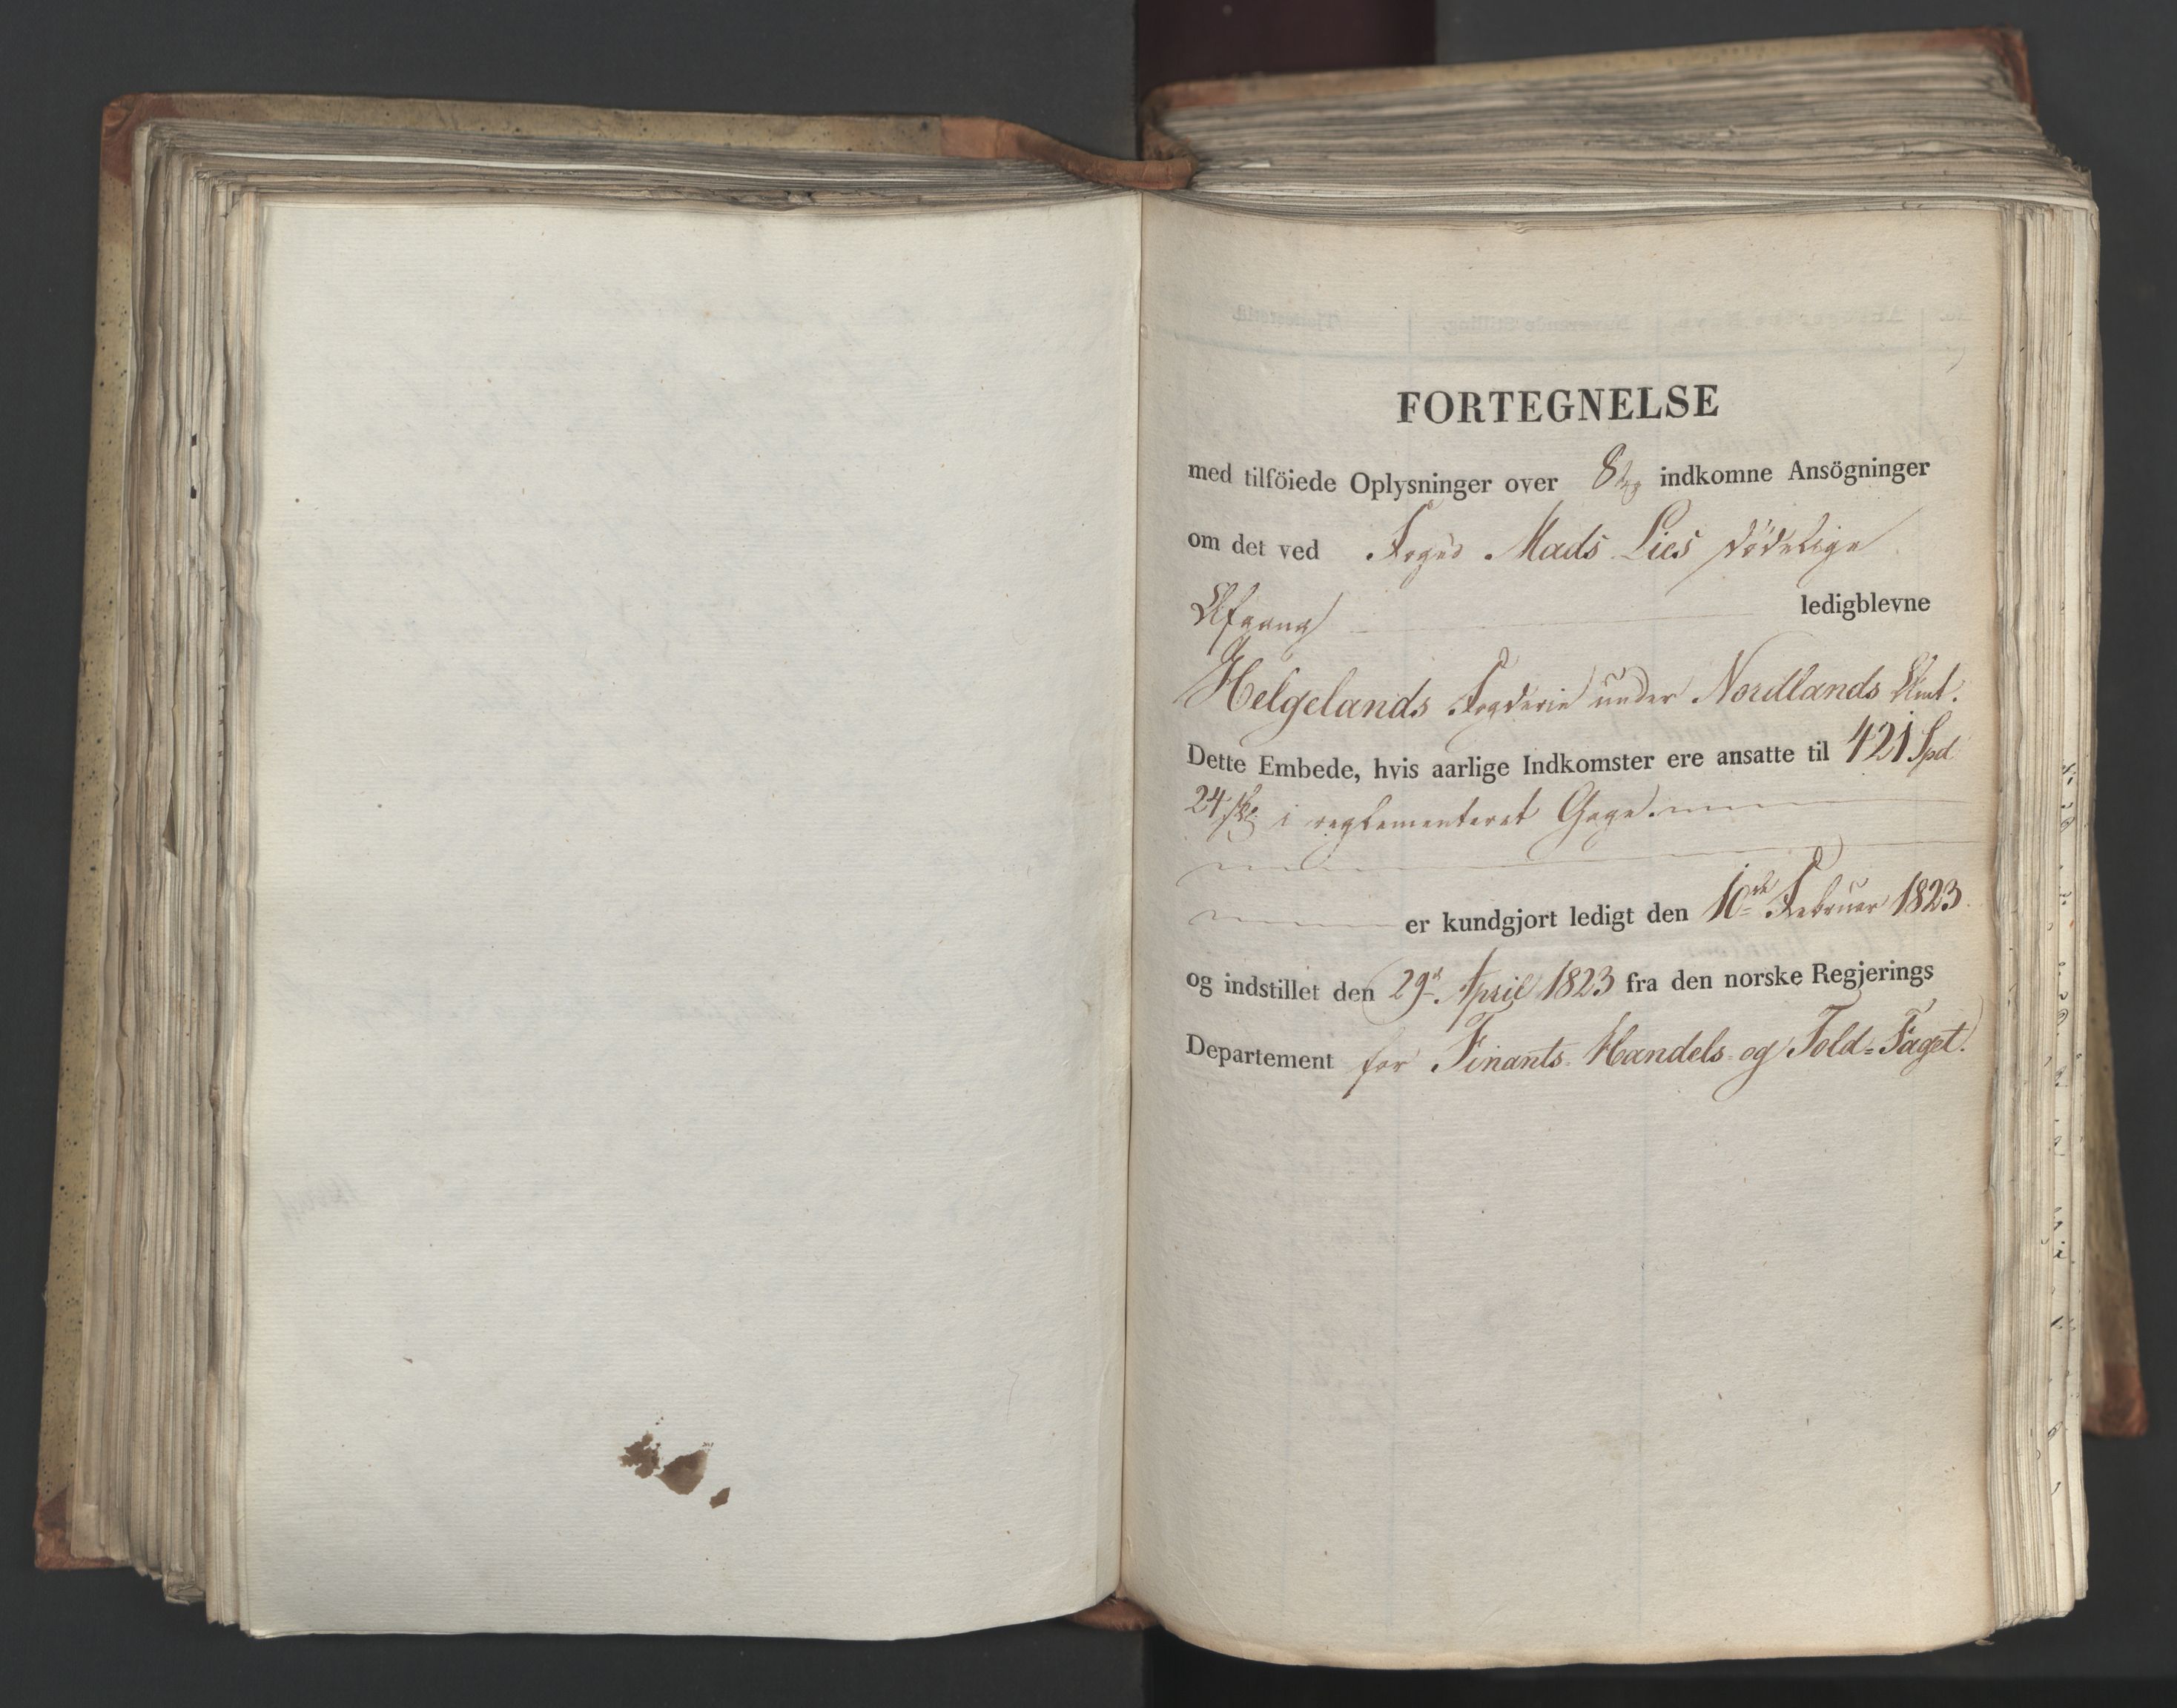 FORTEGNELSE
med tilföiede Oplysninger over 8te indkomne Ansögninger
om det ved Foged Mads Lies dødelige
Afgang ledigblevne
Helgelands Fogderie under Nordlands Amt.
Dette Embede, hvis aarlige Indkomster ere ansatte til 421 Spd
24 sk i reglementeret Gage.
er kundgjort ledigt den 10de Februar 1823.
og indstillet den 29d April 1823 fra den norske Regjerings
Departement for Finants- Handels- og Told=Faget.